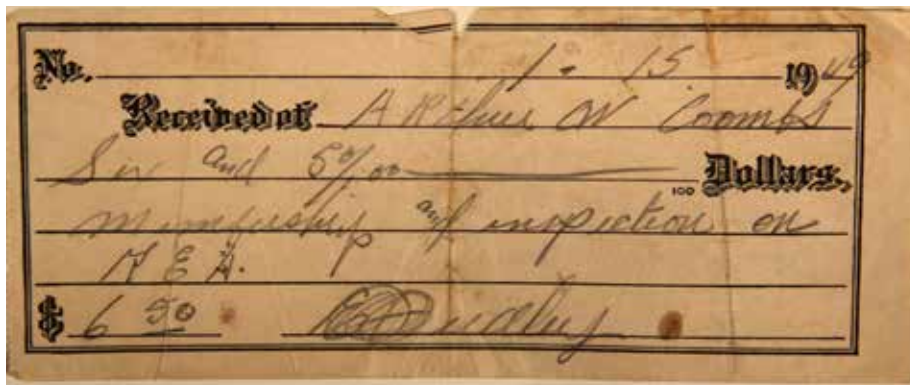 No. 1 - 15 1949
Received of Arthur W Coombs
Six and 50/100 100 Dollars,
Membership and inspection on
R E A.
$ 6 50